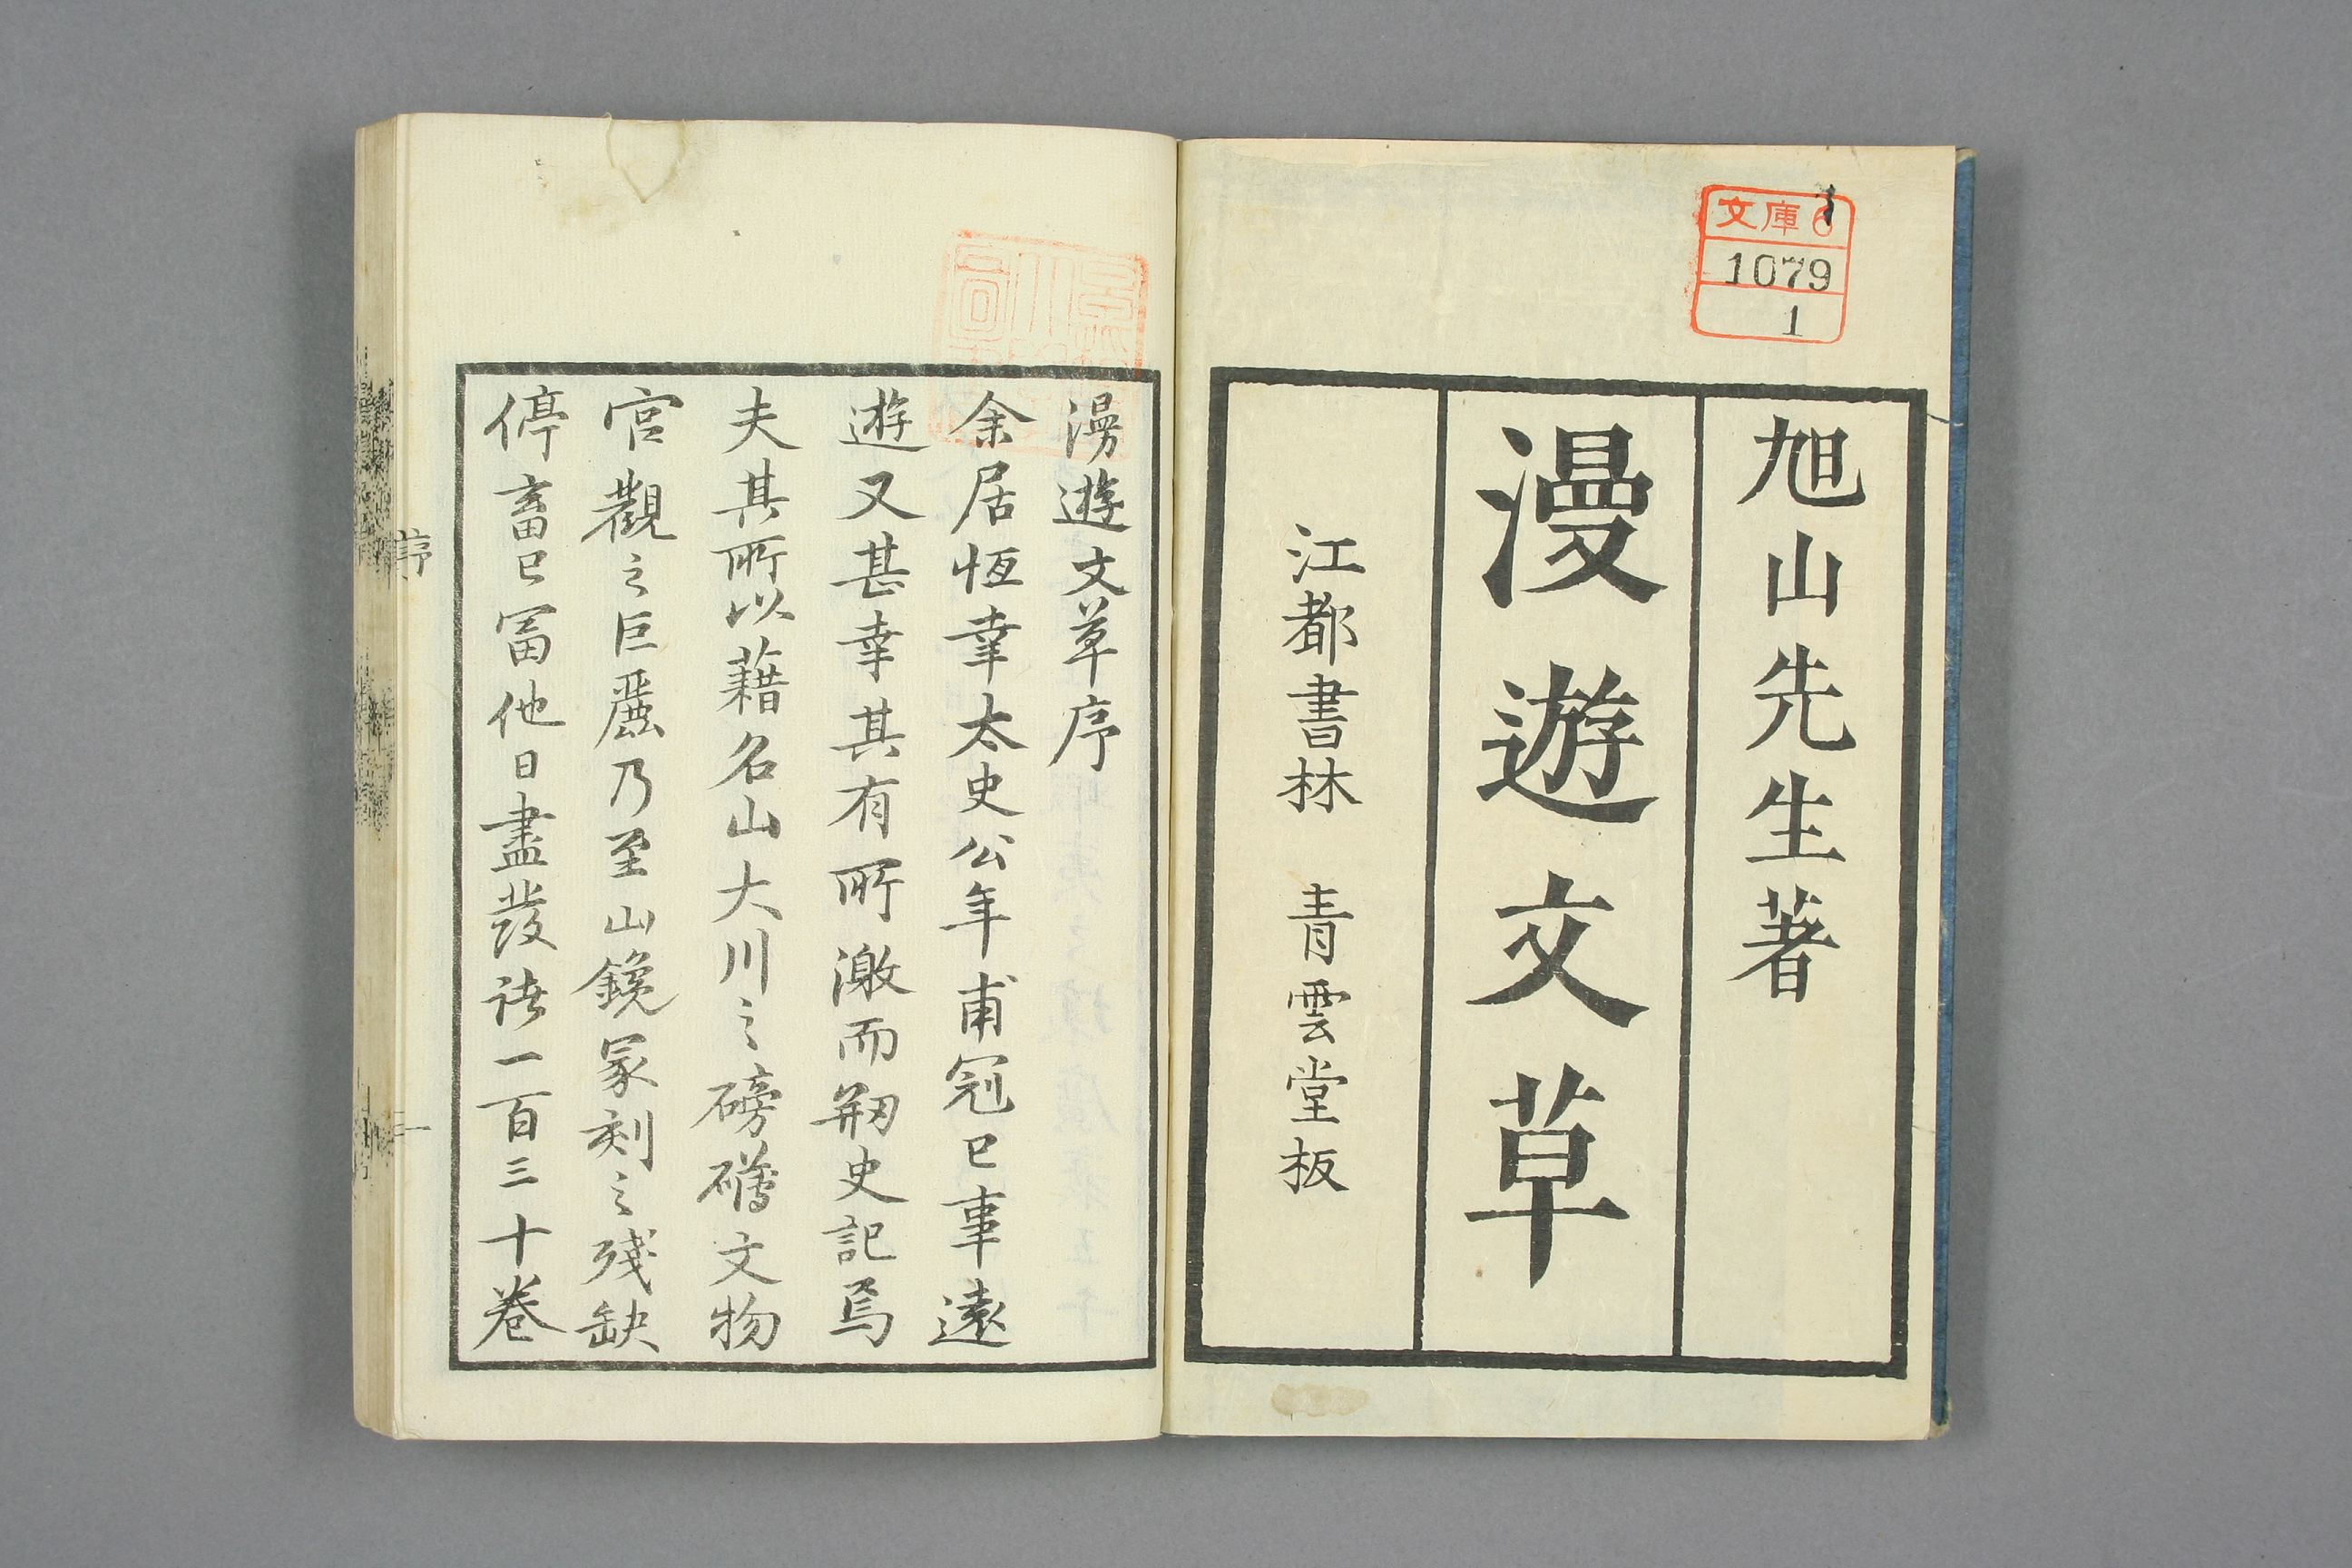 文庫6
1079
1
旭山先生著
漫遊文草
江都書林 青雲堂板
漫遊文草序
余居恆幸太史公年甫冠已事遠
遊又甚幸其有所激而剏史記焉
夫其所以藉名山大川之磅礴文物
宮觀之巨麗乃至山鑱冢刻之殘缺
停畜已富他日盡發諸一百三十卷
序
一